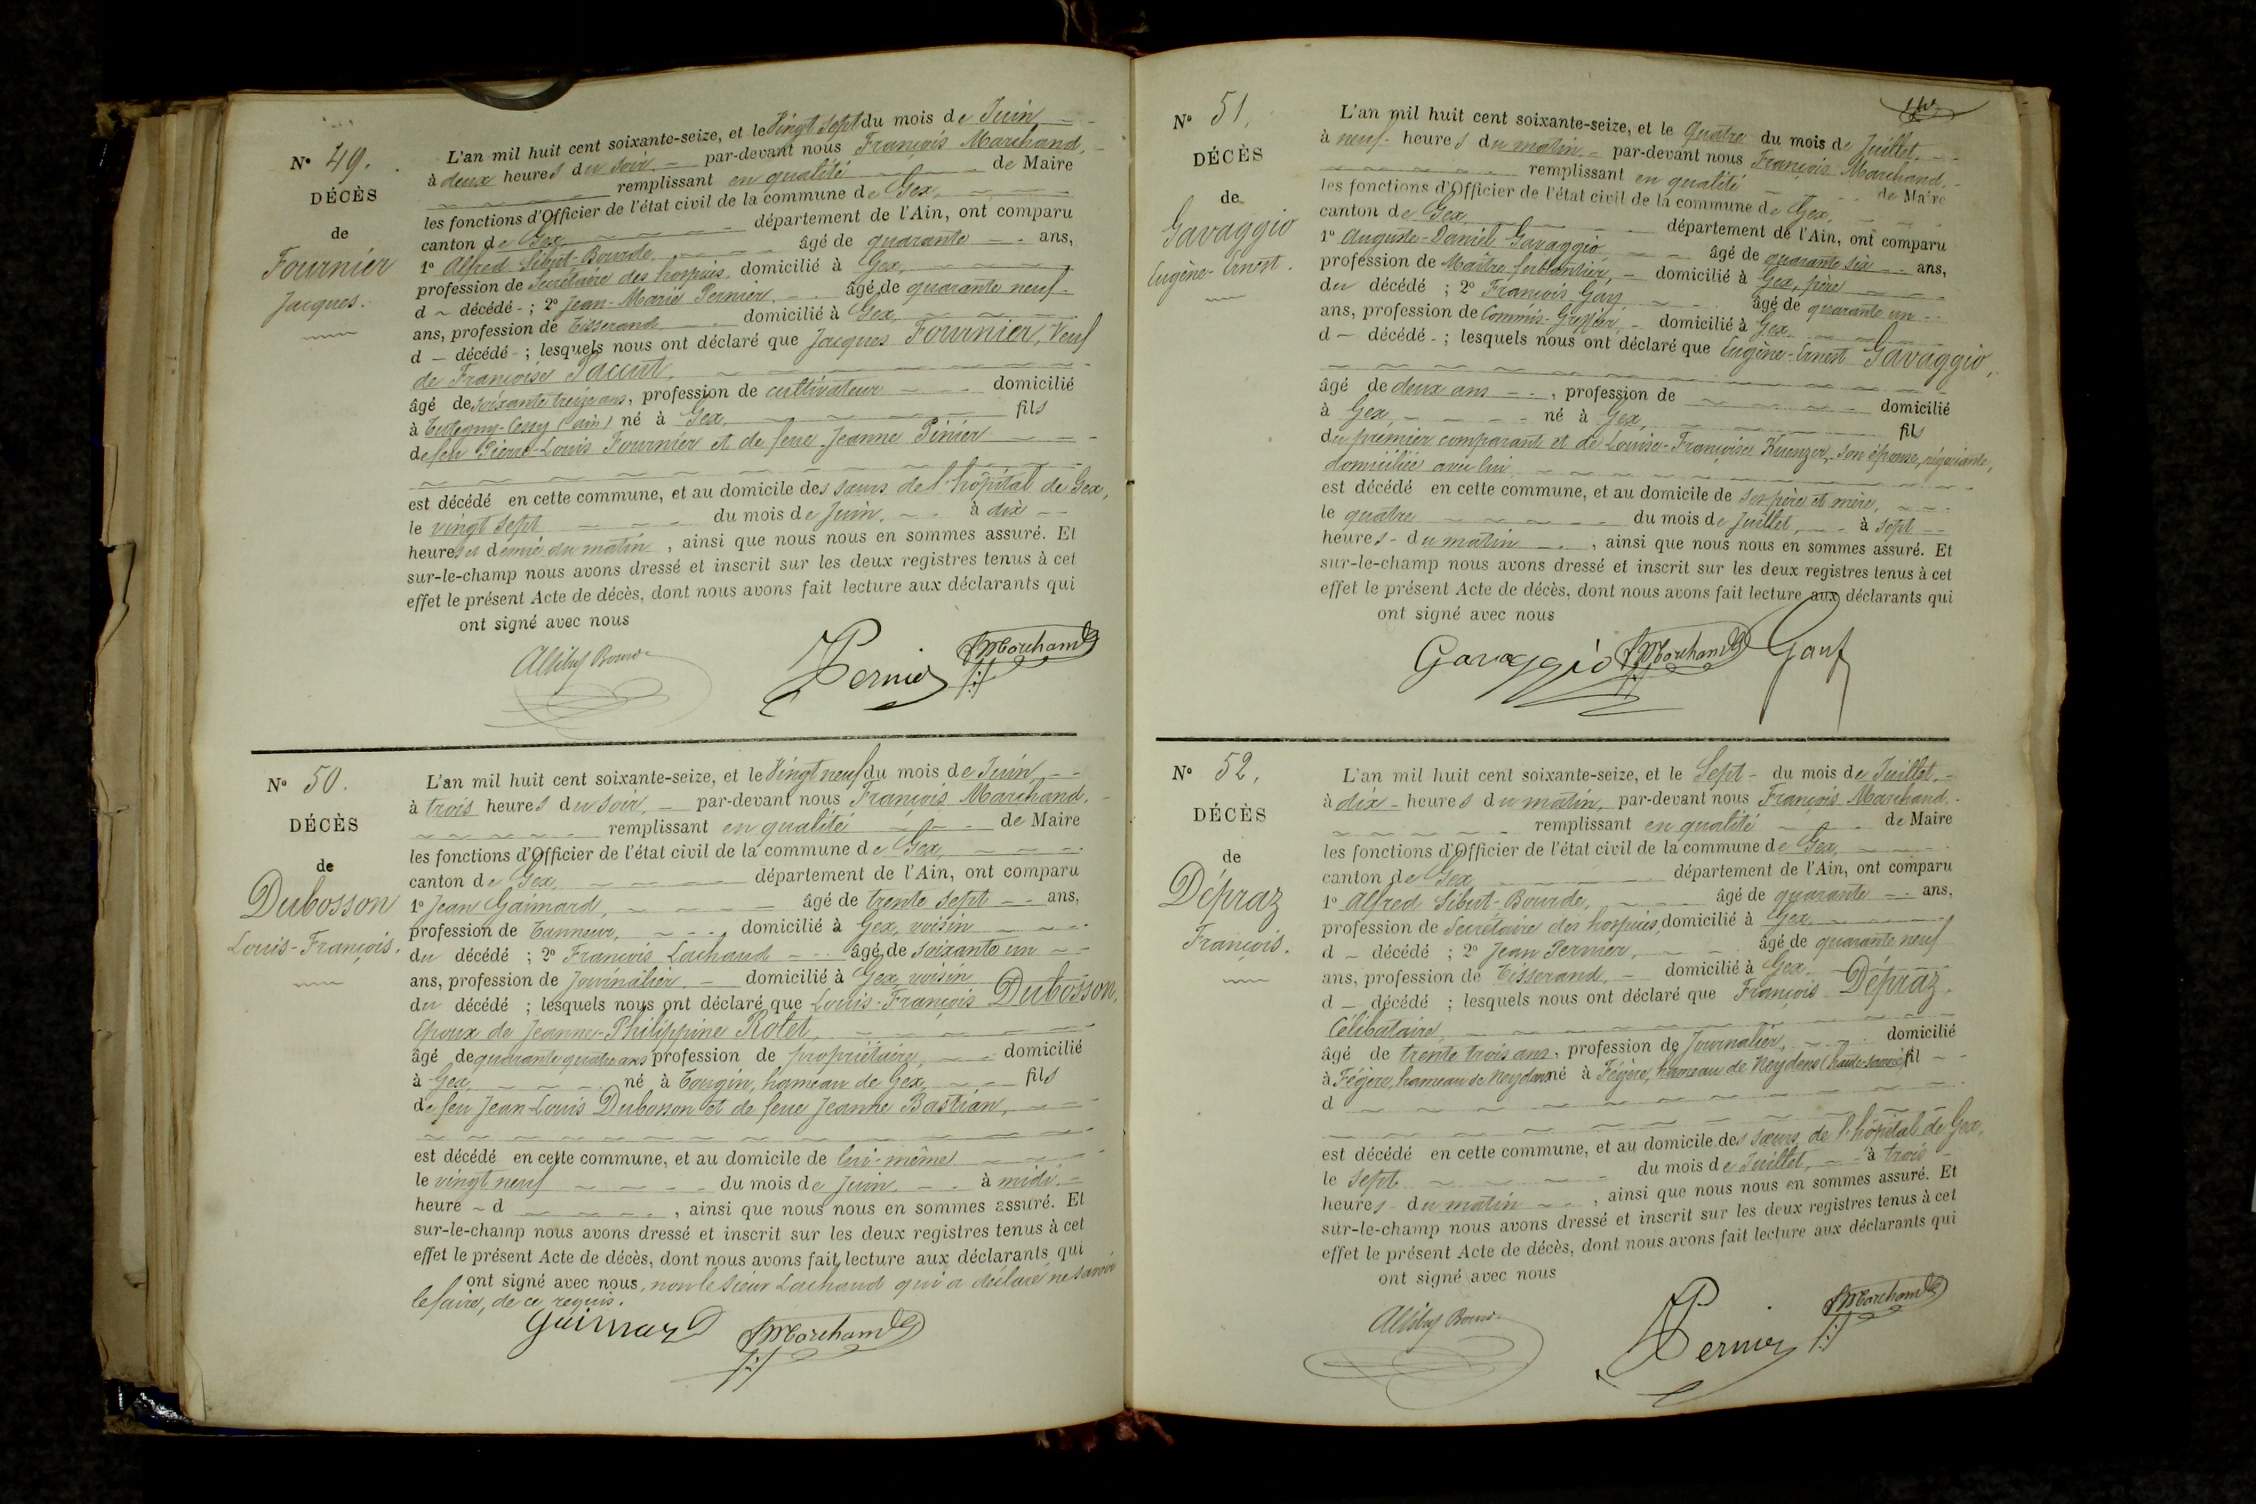 N° 49.
DÉCÈS
de
Fournier
Jacques.
L'an mil huit cent soixante-seize, et le Vingt sept du mois de Juin
à deux heures du soir par-devant nous François Marchand,
remplissant en qualité de Maire
les fonctions d'Officier de l'état civil de la commune de Gex,
canton de Gex département de l'Ain, ont comparu
1° Alfred Sibut-Bourde, âgé de quarante ans,
profession de Secrétaire des hospices, domicilié à Gex,
d décédé ; 2° Jean-Marie Pernier, âgé de quarante neuf
ans, profession de Tisserand domicilié à Gex,
d décédé ; lesquels nous ont déclaré que Jacques Fournier, Veuf
de Françoise
âgé de soixante treize ans, profession de cultivateur domicilié
à Tutegny-Cessy (ain) né à Gex, fils
de feu Pierre-Louis Fournier et de feue Jeanne Pinier
est décédé en cette commune, et au domicile des sœurs de l'hôpital de Gex,
le vingt sept du mois de Juin, à dix
heures et demie du matin, ainsi que nous nous en sommes assuré. Et
sur-le-champ nous avons dressé et inscrit sur les deux registres tenus à cet
effet le présent Acte de décès, dont nous avons fait lecture aux déclarants qui
ont signé avec nous
ASibut Bourde Pernier fMarchand
N° 50.
DÉCÈS
de
Dubosson
Louis-François.
L'an mil huit cent soixante-seize, et le Vingt neuf du mois de Juin,
à trois heures du soir, par-devant nous François Marchand,
remplissant en qualité de Maire
les fonctions d'Officier de l'état civil de la commune de Gex,
canton de Gex, département de l'Ain, ont comparu
1° Jean Gaimard, âgé de trente sept ans,
profession de Tanneur, domicilié à Gex, voisin
du décédé ; 2° François Lachaud âgé de soixante un
ans, profession de Journalier, domicilié à Gex, voisin
du décédé ; lesquels nous ont déclaré que Louis-François Dubosson,
Epoux de Jeanne-Philippine Rolet,
âgé de quarante quatre ans profession de propriétaire, domicilié
à Gex, né à Tougin, hameau de Gex, fils
de feu Jean-Louis Dubosson et de feue Jeanne Bastian,
est décédé en cette commune, et au domicile de lui-même
le vingt neuf du mois de Juin, à midi,
heure d , ainsi que nous nous en sommes assuré. Et
sur-le-champ nous avons dressé et inscrit sur les deux registres tenus à cet
effet le présent Acte de décès, dont nous avons fait lecture aux déclarants qui
ont signé avec nous, non le sieur Lachaud qui a déclaré ne savoir
le faire, de ce requis.
Gaimard fMarchand
N° 51.
DÉCÈS
de
Gavaggio
Eugène-Ernest.
L'an mil huit cent soixante-seize, et le Quatre du mois de Juillet,
à neuf heures du matin par-devant nous François Marchand,
remplissant en qualité de Maire
les fonctions d'Officier de l'état civil de la commune de Gex,
canton de Gex département de l'Ain, ont comparu
1° Auguste-Daniel Gavaggio âgé de quarante six ans,
profession de Maître ferblantier, domicilié à Gex, père
du décédé ; 2° François Gay âgé de quarante un
ans, profession de Commis-Greffier, domicilié à Gex
d décédé ; lesquels nous ont déclaré que Eugène-Ernest Gavaggio,
âgé de deux ans , profession de domicilié
à Gex, né à Gex, fils
du premier comparant et de Louise-Françoise Kuenzer, son épouse, négociante,
domiciliée avec lui
est décédé en cette commune, et au domicile de ses père et mère,
le quatre du mois de Juillet, à sept
heures du matin , ainsi que nous nous en sommes assuré. Et
sur-le-champ nous avons dressé et inscrit sur les deux registres tenus à cet
effet le présent Acte de décès, dont nous avons fait lecture aux déclarants qui
ont signé avec nous
Gavaggio fMarchand Gay
N° 52.
DÉCÈS
de
Dépraz
François.
L'an mil huit cent soixante-seize, et le Sept du mois de Juillet,
à dix heures du matin, par-devant nous François Marchand,
remplissant en qualité de Maire
les fonctions d'Officier de l'état civil de la commune de Gex,
canton de Gex département de l'Ain, ont comparu
1° Alfred Sibut-Bourde, âgé de quarante ans,
profession de Secrétaire des hospices, domicilié à Gex,
d décédé ; 2° Jean Pernier, âgé de quarante neuf
ans, profession de Tisserand, domicilié à Gex,
d décédé ; lesquels nous ont déclaré que François Dépraz,
Célibataire,
âgé de trente trois ans, profession de Journalier, domicilié
à Fégère, hameau de Neydens né à Fégère, hameau de Neydens (haute-savoie) fil
d
est décédé en cette commune, et au domicile des sœurs de l'hôpital de Gex,
le sept du mois de Juillet, à trois
heures du matin , ainsi que nous nous en sommes assuré. Et
sur-le-champ nous avons dressé et inscrit sur les deux registres tenus à cet
effet le présent Acte de décès, dont nous avons fait lecture aux déclarants qui
ont signé avec nous
ASibut Bourde Pernier fMarchand